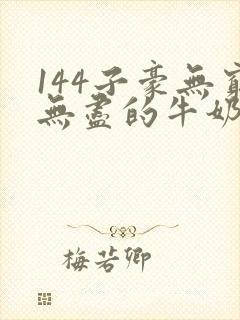 144子豪無窮
無盡的牛奶
梅若卿